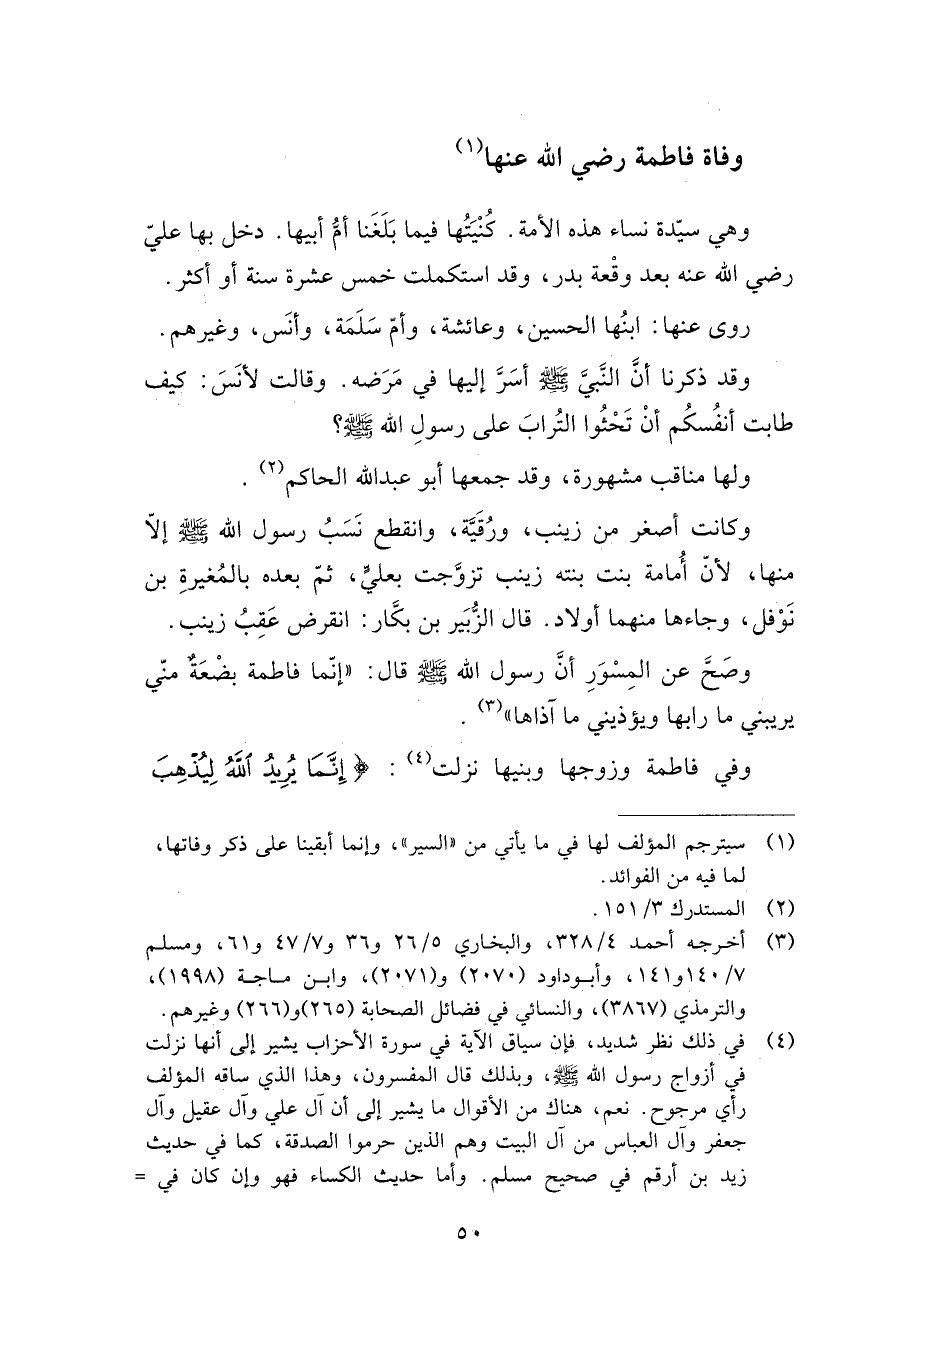 وفاة فاطمة رضي الله عنها(١)
وهي سيّدة نساء هذه الأمة. كُنْيَتُها فيما بَلَغَنا أمُّ أبيها. دخل بها عليّ
رضي الله عنه بعد وقْعة بدر، وقد استكملت خمس عشرة سنة أو أكثر.
روى عنها: ابنُها الحسين، وعائشة، وأمّ سَلَمَة، وأنَس، وغيرهم.
وقد ذكرنا أنَّ النَّبيَّ ﷺ أسَرَّ إليها في مَرَضه. وقالت لأنَسَ: كيف
طابت أنفُسكُم أنْ تَحْثُوا التُرابَ على رسولِ الله ﷺ؟
ولها مناقب مشهورة، وقد جمعها أبو عبدالله الحاكم(٢).
وكانت أصغر من زينب، ورُقَيَّة، وانقطع نَسَبُ رسول الله ﷺ إلاّ
منها، لأنّ أُمامة بنت بنته زينب تزوَّجت بعليٍّ، ثمّ بعده بالمُغيرةِ بن
نَوْفل، وجاءها منهما أولاد. قال الزُّبَير بن بكَّار: انقرض عَقِبُ زينب.
وصَحَّ عن المِسْوَرِ أنَّ رسول الله ﷺ قال: «إنّما فاطمة بضْعَةٌ منّي
يريبني ما رابها ويؤذيني ما آذاها»(٣).
وفي فاطمة وزوجها وبنيها نزلت(٤): ﴿ إِنَّمَا يُرِيدُ ٱللَّهُ لِيُذْهِبَ
(١) سيترجم المؤلف لها في ما يأتي من «السير»، وإنما أبقينا على ذكر وفاتها،
لما فيه من الفوائد.
(٢) المستدرك ٣/ ١٥١.
(٣) أخرجه أحمد ٤/ ٣٢٨، والبخاري ٥/ ٢٦ و٣٦ و٧/ ٤٧ و٦١، ومسلم
٧/ ١٤٠و١٤١، وأبوداود (٢٠٧٠) و(٢٠٧١)، وابن ماجة (١٩٩٨)،
والترمذي (٣٨٦٧)، والنسائي في فضائل الصحابة (٢٦٥)و(٢٦٦) وغيرهم.
(٤) في ذلك نظر شديد، فإن سياق الآية في سورة الأحزاب يشير إلى أنها نزلت
في أزواج رسول الله ﷺ، وبذلك قال المفسرون، وهذا الذي ساقه المؤلف
رأي مرجوح. نعم، هناك من الأقوال ما يشير إلى أن آل علي وآل عقيل وآل
جعفر وآل العباس من آل البيت وهم الذين حرموا الصدقة، كما في حديث
زيد بن أرقم في صحيح مسلم. وأما حديث الكساء فهو وإن كان في =
٥٠